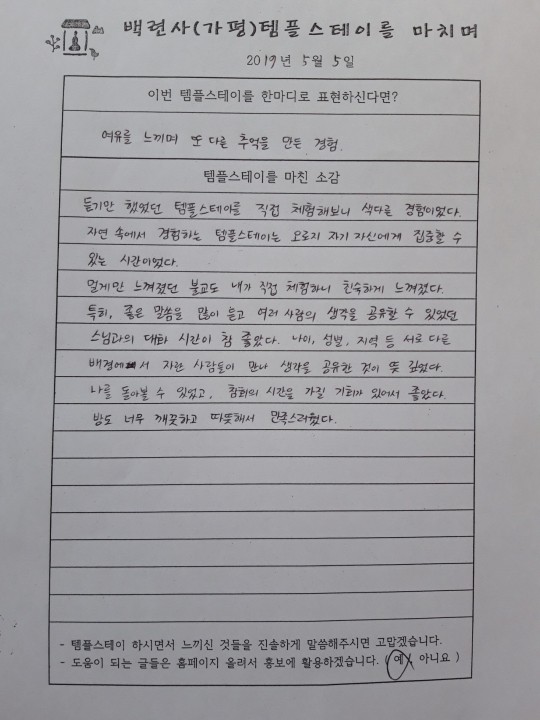 백련사(가평)템플스테이를 마치며
2019년 5월 5일
이번 템플스테이를 한마디로 표현하신다면?
여유를 느끼며 또 다른 추억을 만든 경험.
템플스테이를 마친 소감
듣기만 했었던 템플스테이를 직접 체험해보니 색다른 경험이었다.
자연 속에서 경험하는 템플스테이는 오로지 자기 자신에게 집중할 수
있는 시간이었다.
멀게만 느껴졌던 불교도 내가 직접 체험하니 친숙하게 느껴졌다.
특히, 좋은 말씀을 많이 듣고 여러 사람의 생각을 공유할 수 있었던
스님과의 대화 시간이 참 좋았다. 나이, 성별, 지역 등 서로 다른
배경에서 자란 사람들이 만나 생각을 공유한 것이 뜻 깊었다.
나를 돌아볼 수 있었고, 참회의 시간을 가질 기회가 있어서 좋았다.
방도 너무 깨끗하고 따뜻해서 만족스러웠다.
- 템플스테이 하시면서 느끼신 것들을 진솔하게 말씀해주시면 고맙겠습니다.
- 도움이 되는 글들은 홈페이지 올려서 홍보에 활용하겠습니다. ( 예, 아니요 )